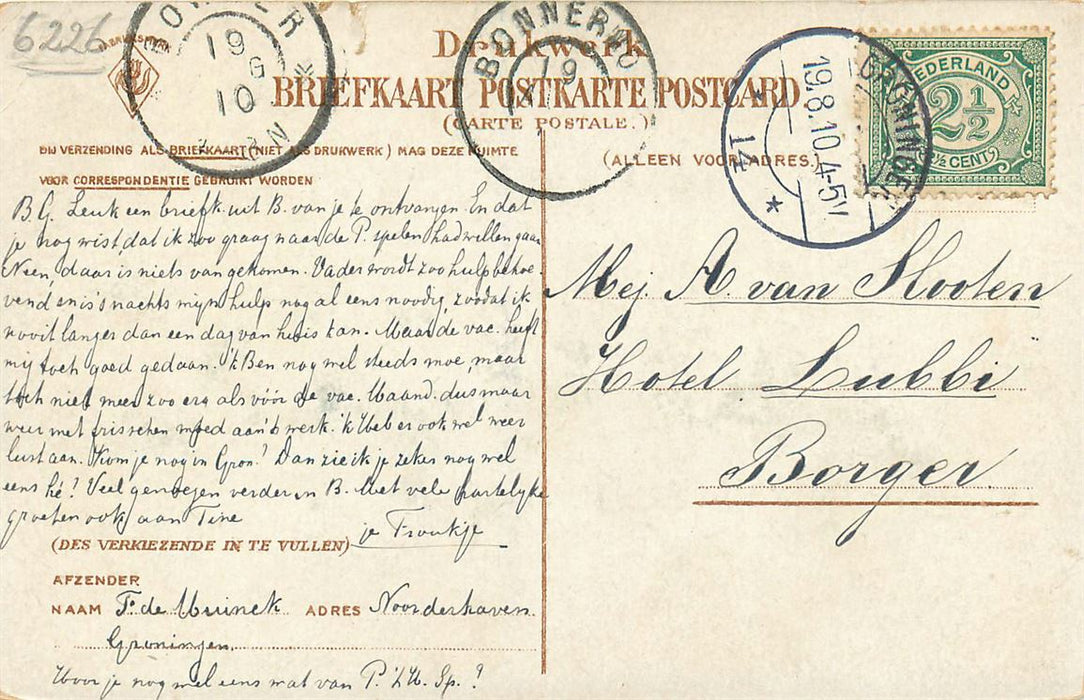 6226
BONNER
19
8
10
BONNER
19
GRONINGEN
19.8.10.4-5V
14
NEDERLAND
2½
2½ CENTS
Drukwerk
BRIEFKAART POSTKARTE POSTCARD
(CARTE POSTALE.)
BIJ VERZENDING ALS BRIEFKAART (NIET ALS DRUKWERK) MAG DEZE RUIMTE
VOOR CORRESPONDENTIE GEBRUIKT WORDEN
(ALLEEN VOOR ADRES.)
B.G. Leuk een briefk. uit B. van je te ontvangen. En dat
je nog wist, dat ik zoo graag naar de P. spelen had willen gaan
Neen, daar is niets van gekomen. Vader wordt zoo hulpbehoe-
vend en is 's nachts mijn hulp nog al eens noodig, zoodat ik
nooit langer dan een dag van huis kan. Maar de vac. heeft
mij toch goed gedaan. 'k Ben nog wel steeds moe, maar
toch niet meer zoo erg als vóór de vac. Maand. dus maar
weer met frisschen moed aan 't werk. 'k Heb er ook wel weer
lust aan. Kom je nog in Gron.? Dan zie ik je zeker nog wel
eens hé? Veel genoegen verder in B. Met vele hartelijke
groeten ook aan Tine
je Froukje
Mej. A. van Slooten
Hotel Lubbi
Borger
(DES VERKIEZENDE IN TE VULLEN)
AFZENDER
NAAM F. de Muinck ADRES Noorderhaven
Groningen
Hoor je nog wel eens wat van P. Sp.?